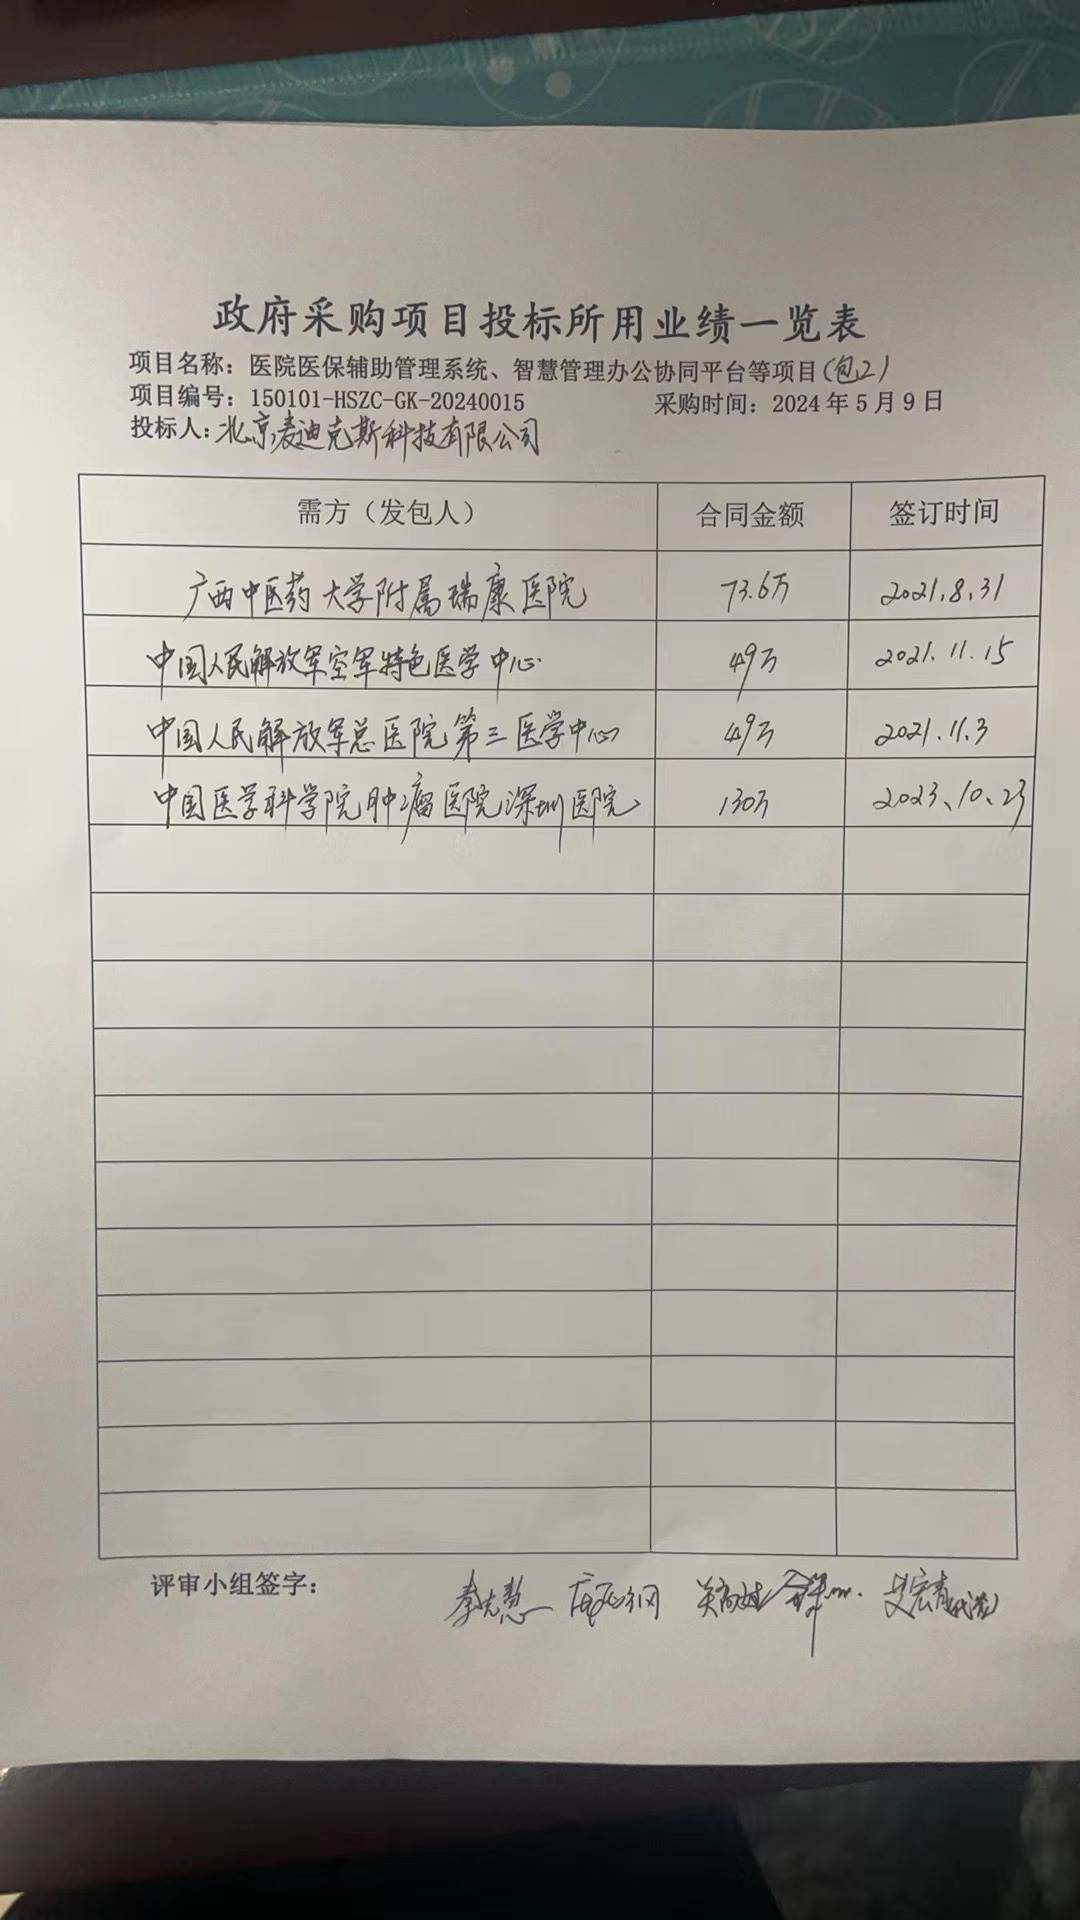 政府采购项目投标所用业绩一览表
项目名称：医院医保辅助管理系统、智慧管理办公协同平台等项目(包2)
项目编号：150101-HSZC-GK-20240015 采购时间：2024年5月9日
投标人：北京麦迪克斯科技有限公司
需方（发包人） 合同金额 签订时间
广西中医药大学附属瑞康医院 73.6万 2021.8.31
中国人民解放军空军特色医学中心 49万 2021.11.15
中国人民解放军总医院第三医学中心 49万 2021.11.3
中国医学科学院肿瘤医院深圳医院 130万 2023、10、23
评审小组签字：